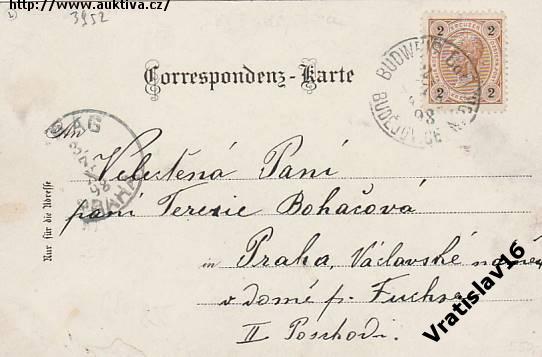 http://www.auktiva.cz/
3952
2
2
2
2
BUDWEIS
BUDĚJOVICE
98
Correspondenz-Karte
PRAG
PRAHA
98
An
Velectěná Paní
paní Terezie Boháčová
in Praha, Václavské náměs
v domě p. Fuchse
II Poschodi.
Nur für die Adresse
Vratislav16